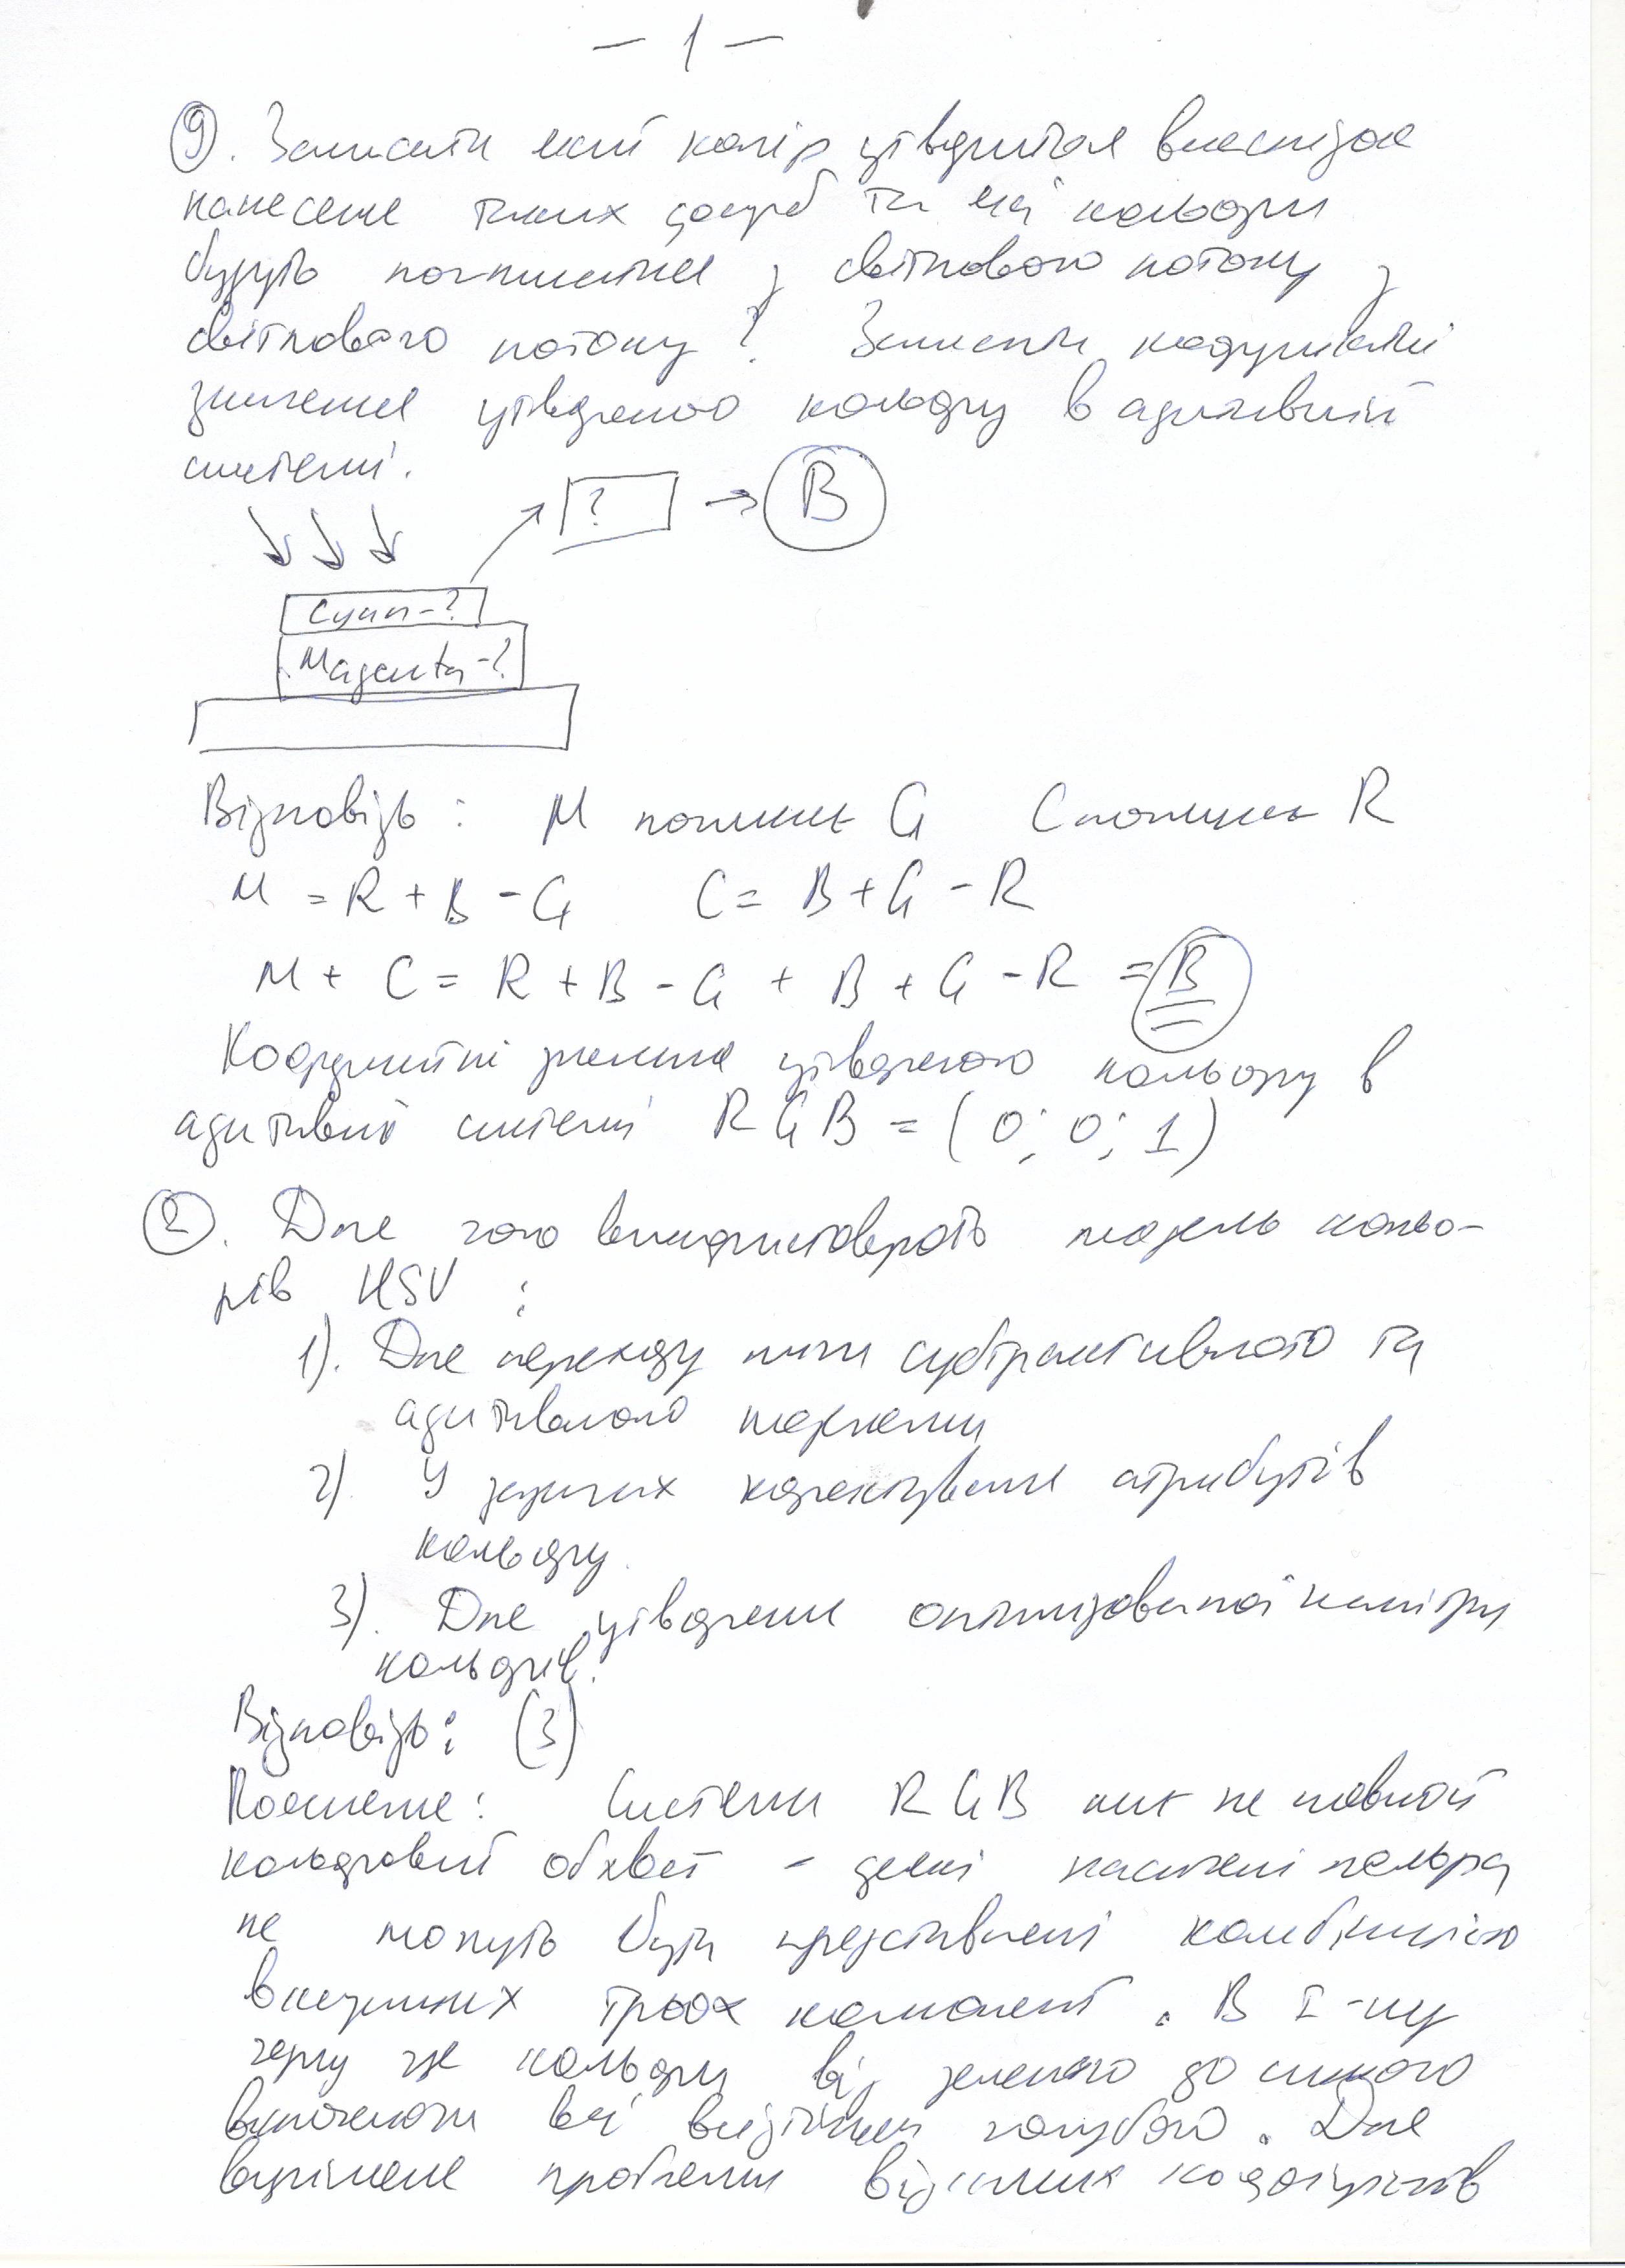 - 1 -
9. Записати який колір утвориться внаслідок
нанесення таких фарб та які кольори
будуть поглинатися з світлового потоку з
світлового потоку? Записати координатні
значення утвореного кольору в адитивній
системі.
? → B
Cyan-?
Magenta-?
Відповідь: M поглинає G C поглинає R
M = R + B - G C = B + G - R
M + C = R + B - G + B + G - R = B
Координатні значення утвореного кольору в
адитивній системі RGB = (0; 0; 1)
2. Для чого використовують модель кольо-
рів HSV:
1). Для переходу між субтрактивною та
адитивною моделями
2) У задачах корегування атрибутів
кольору.
3). Для утворення оптимізованої палітри
кольорів.
Відповідь: (3)
Пояснення: Система RGB має не повний
кольоровий обхват - деякі насичені кольори
не можуть бути представлені комбінацією
вказаних трьох компонент. В I-шу
чергу це кольори від зеленого до синього
включаючи всі відтінки голубого. Для
вирішення проблеми від'ємних коефіцієнтів